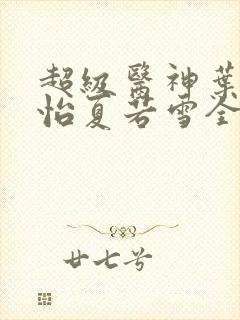 超級醫神葉
怡夏若雪全
廿七兮